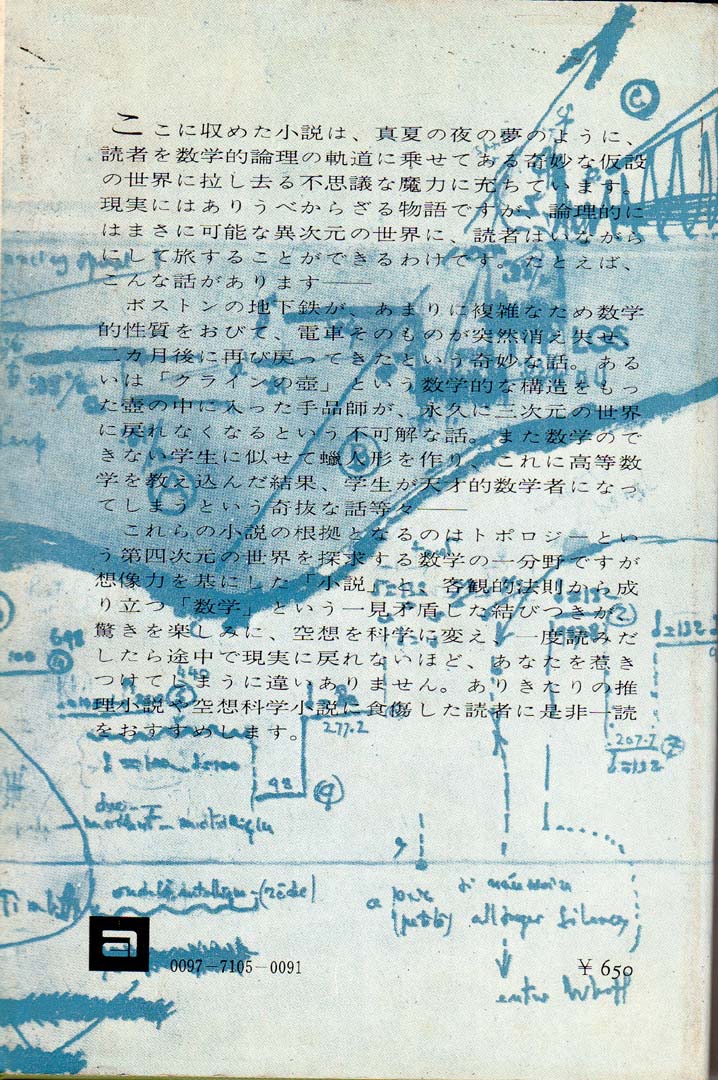 ここに収めた小説は、真夏の夜の夢のように、
読者を数学的論理の軌道に乗せてある奇妙な仮設
の世界に拉し去る不思議な魔力に充ちています。
現実にはありうべからざる物語ですが、論理的に
はまさに可能な異次元の世界に、読者はいながら
にして旅することができるわけです。たとえば、
こんな話があります――
ボストンの地下鉄が、あまりに複雑なため数学
的性質をおびて、電車そのものが突然消え失せ、
二カ月後に再び戻ってきたという奇妙な話。ある
いは「クラインの壺」という数学的な構造をもっ
た壺の中に入った手品師が、永久に三次元の世界
に戻れなくなるという不可解な話。また数学ので
きない学生に似せて蠟人形を作り、これに高等数
学を教え込んだ結果、学生が天才的数学者になっ
てしまうという奇抜な話等々――
これらの小説の根拠となるのはトポロジーとい
う第四次元の世界を探求する数学の一分野ですが
想像力を基にした「小説」と、客観的法則から成
り立つ「数学」という一見矛盾した結びつきが、
驚きを楽しみに、空想を科学に変え、一度読みだ
したら途中で現実に戻れないほど、あなたを惹き
つけてしまうに違いありません。ありきたりの推
理小説や空想科学小説に食傷した読者に是非一読
をおすすめします。
277.2
207.7
98
a
0097-7105-0091
¥ 650